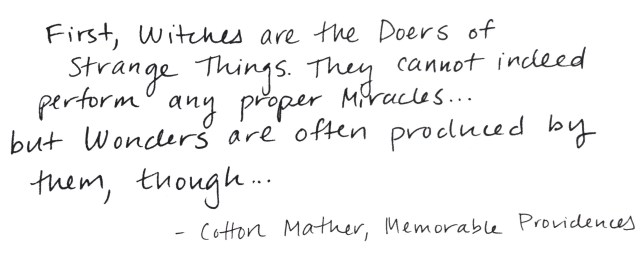 First, Witches are the Doers of
Strange Things. They cannot indeed
perform any proper Miracles...
but Wonders are often produced by
them, though...
- Cotton Mather, Memorable Providences